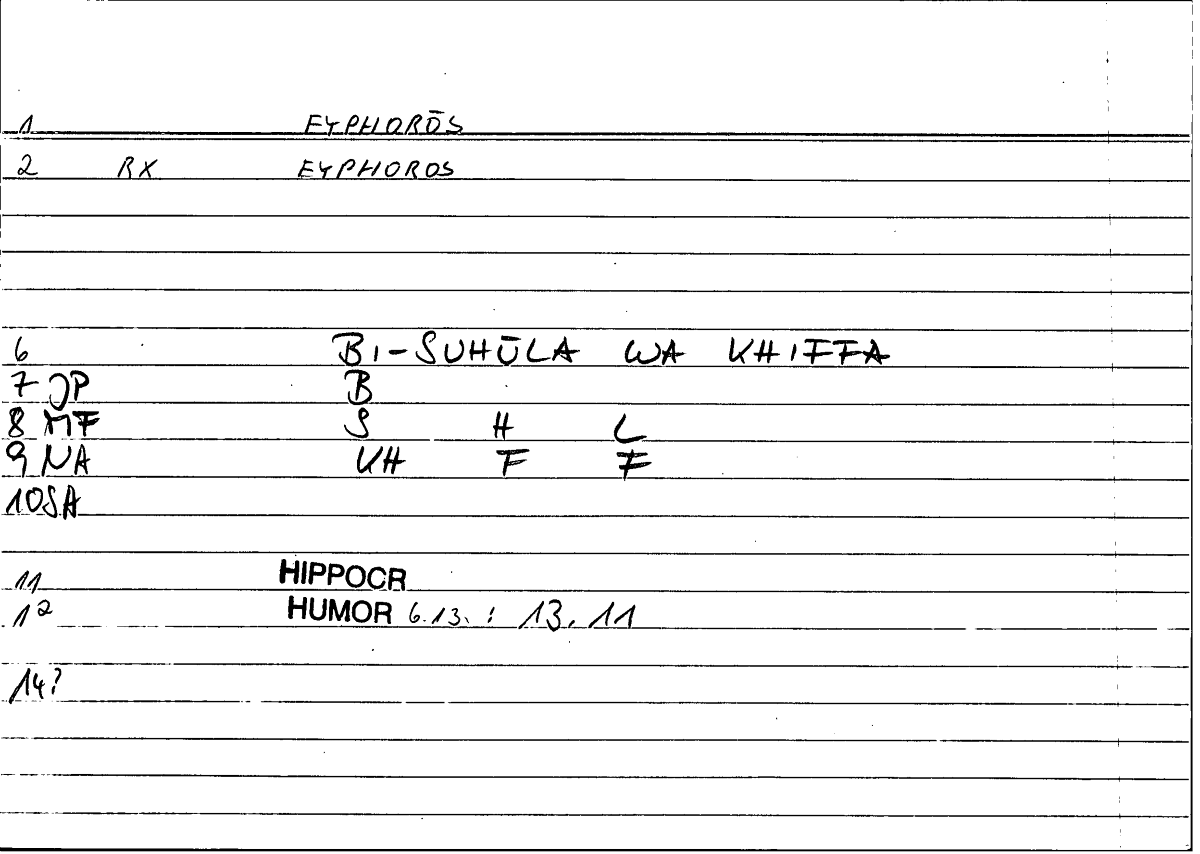 1 EYPHORŌS
2 RX EYPHOROS
6 BI-SUHŪLA WA KHIFFA
7 JP B
8 MF S H L
9 NA KH F F
10 SA
11 HIPPOCR
12 HUMOR 6.13. : 13.11
14?